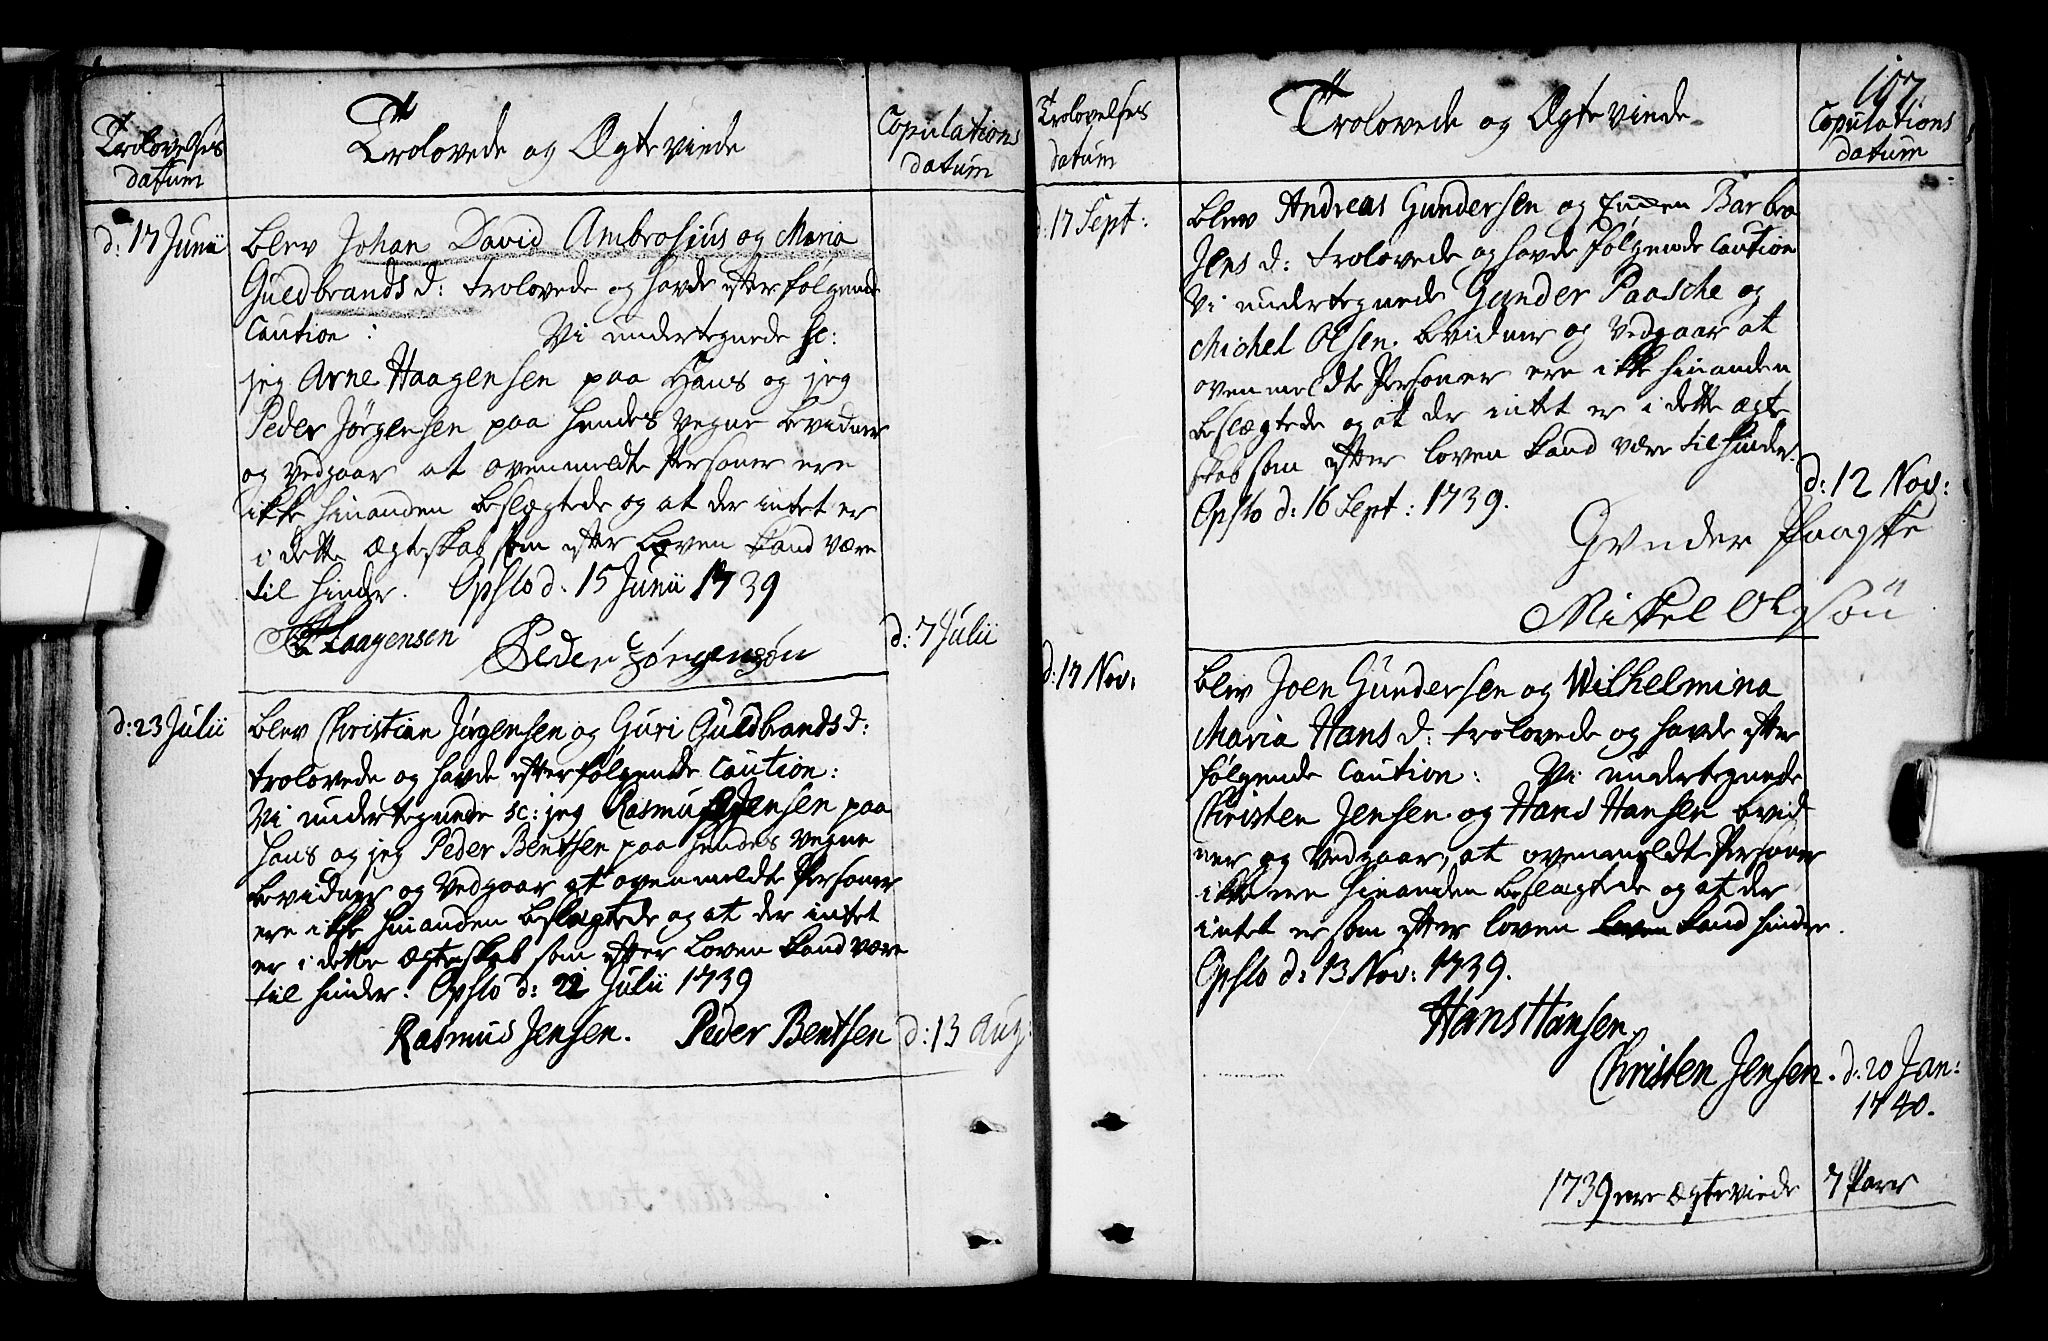 Trolovelses
datum
Trolovede og Ægteviede
Copulations
datum
d: 17 Junii
blev Johan David Ambrosius og Maria
Guldbrands d: trolovede og havde efterfølgende
Caution: Vi undertegnede sc:
jeg Arne Haagensen paa Hans og jeg
Peder Jørgensen paa hendes vegne bevidner
og vedgaar at ovenmeldte Personer ere
ikke hinanden beslægtede og at der intet er
i dette Ægteskab som efter Loven kand være
til hinder. Opslo d. 15 Junii 1739
Haagensen Peder Jørgensøn
d: 7 Julii
d: 23 Julii
blev Christian Jørgensen og Guri Guldbrands d:
trolovede og havde efterfølgende Caution:
Vi undertegnede sc: jeg Rasmus Jensen paa
Hans og jeg Peder Bentsen paa hendes vegne
bevidner og vedgaar at ovenmeldte Personer
ere ikke hinanden beslægtede og at der intet
er i dette Ægteskab som efter Loven kand være
til hinder. Opslo d: 22 Julii 1739
Rasmus Jensen. Peder Bentsen
d: 13 Aug:
107.
Trolovelses
datum
Trolovede og Ægteviede
Copulations
datum
d: 17 Sept:
blev Andreas Gundersen og Barbra
Jens d: trolovede og havde følgende Caution
Vi undertegnede Gunder Paasche og
Michel Olsen. bevidner og vedgaar at
ovenmeldte Personer ere ikke hinanden
beslægtede og at der intet er i dette Ægte
skab som efter Loven kand være til hinder.
Opslo d: 16 Sept: 1739.
d: 12 Nov:
Gvnder Paaske
Mikkel Olsøn
d: 17 Nov:
blev Joen Gundersen og Wilhelmina
Maria Hans d: trolovede og havde efter
følgende Caution: Vi undertegnede
Christen Jensen og Hans Hansen bevid
ner og vedgaar, at ovenmeldte Personer
ikke ere hinanden beslægtede og at der
intet er som efter Loven Loven kand hindre.
Opslo d: 13 Nov: 1739.
Hans Hansen.
Christen Jensen.
d: 20 Jan:
1740.
1739 ere Ægteviede 7 Parr